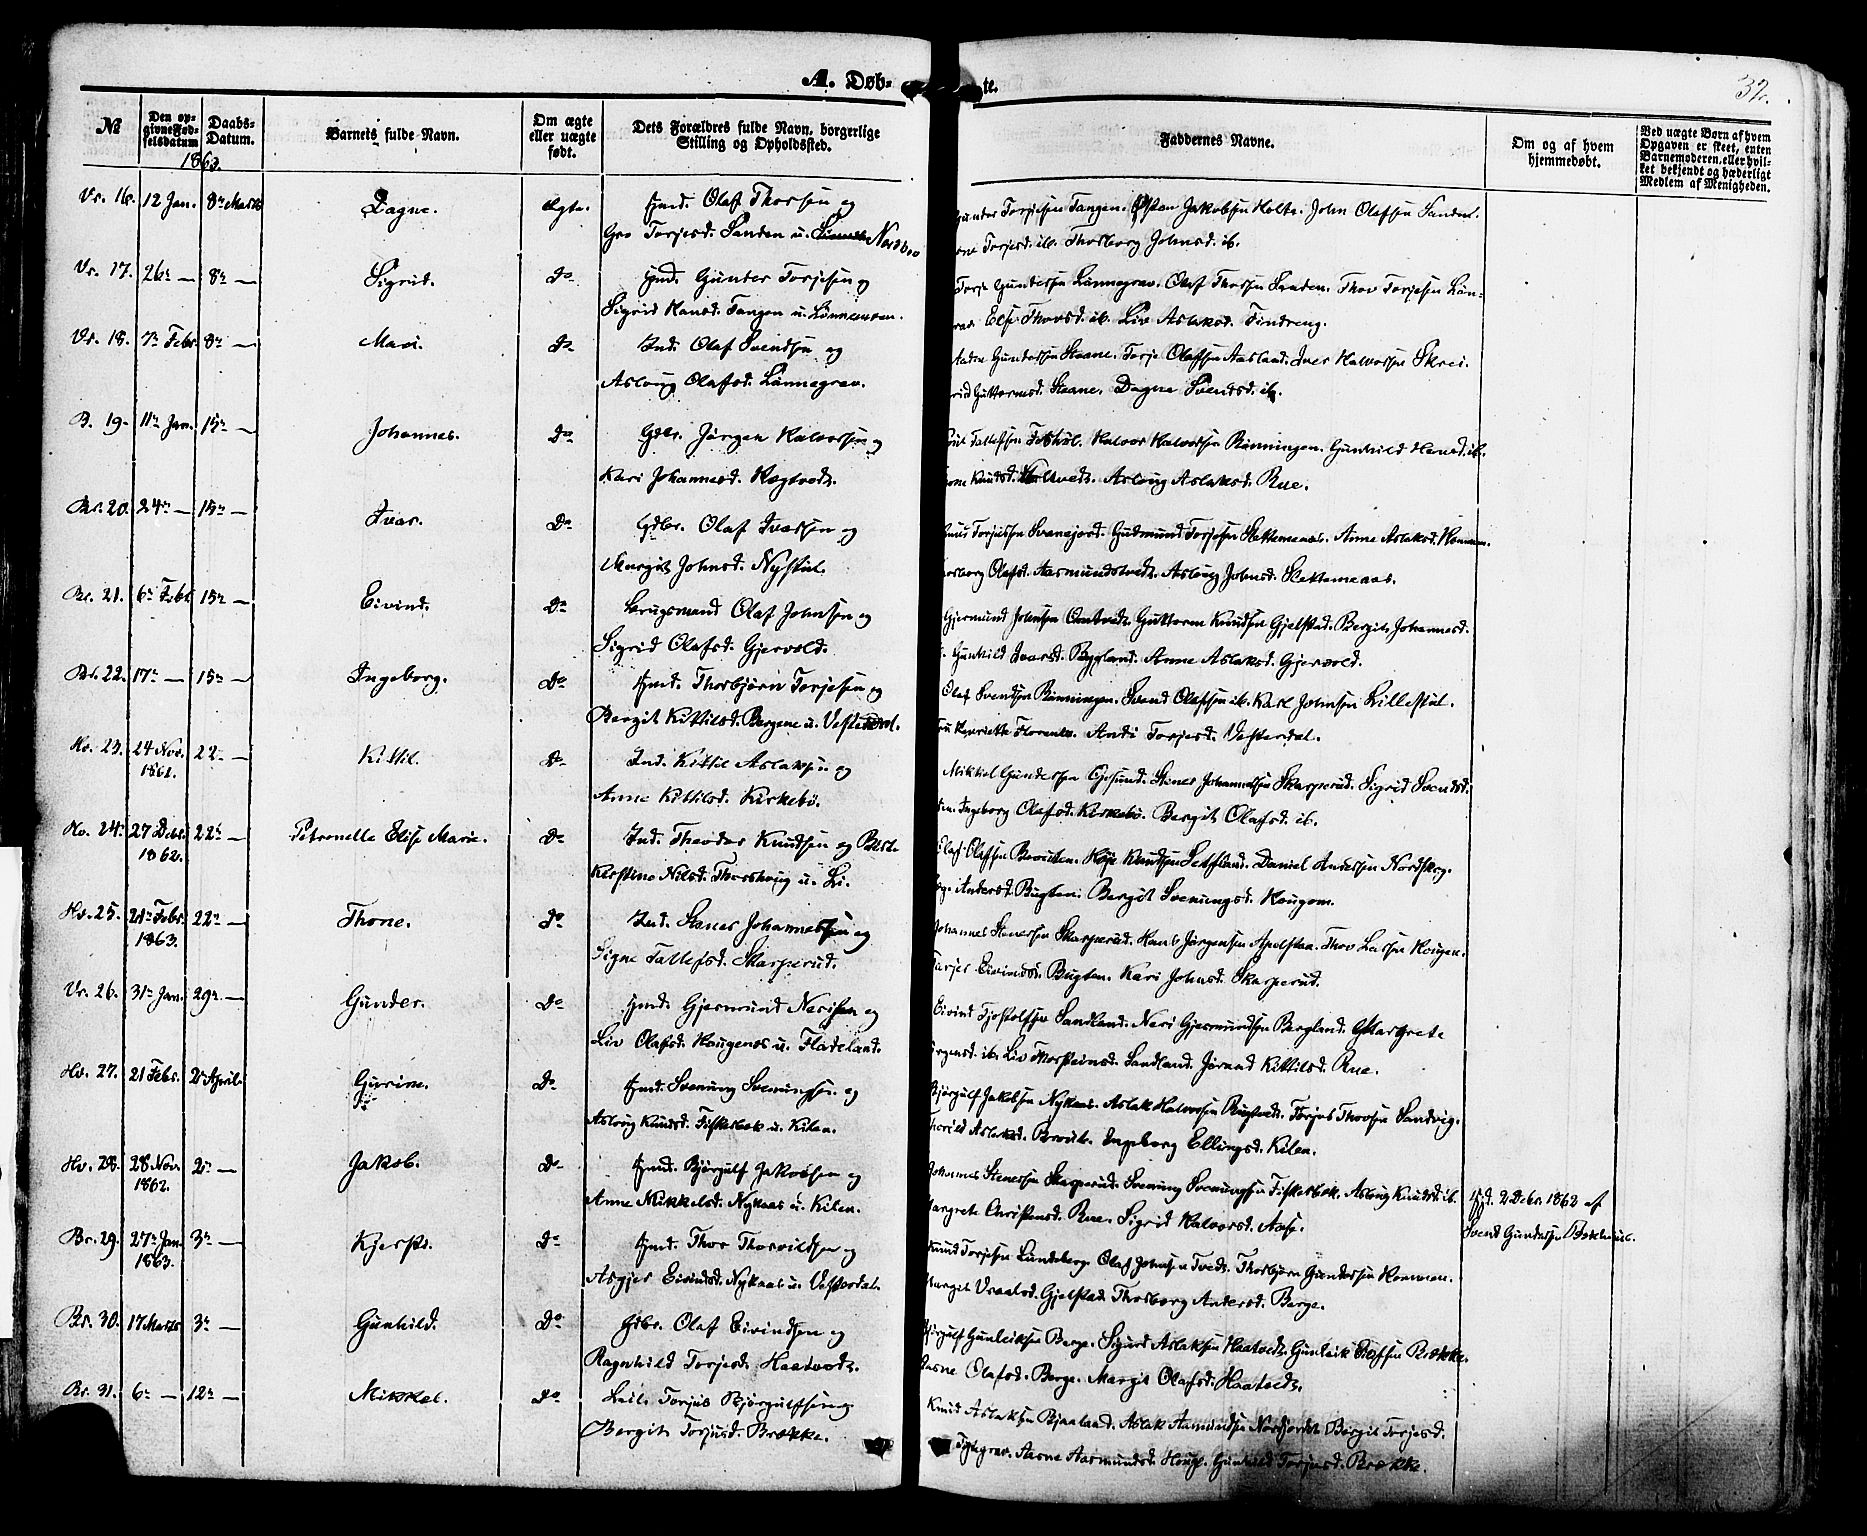 A. Døb-
te.
32.
№
Den op-
givne Fød-
selsdatum
Daabs-
Datum.
Barnets fulde Navn.
Om ægte
eller uægte
født.
Dets Forældres fulde Navn, borgerlige
Stilling og Opholdssted.
Faddernes Navne.
Om og af hvem
hjemmedøbt.
Ved uægte Børn af hvem
Opgaven er skeet, enten
Barnemoderen, eller hvil-
ket bekjendt og hæderligt
Medlem af Menigheden.
1863.
Vr. 16. 12 Jan. 8de Marts Dagne. Ægte. Olaf Thorsen og
Gro Torjesd. Sanden u. Nordbø
Gunder Torjesen Tangen. Østen Jakobsen Holte. John Olafsen Sanden.
Torjesd. ib. Thorborg Johnsd. ib.
Vr. 17. 26de — 8de — Sigrid. Do Gunder Torjesen og
Sigrid Hansd. Tangen u.
Torje Gundersen Lønnegrav. Olaf Thorsen Sanden. Thov Torjesen Løn-
Else Thovsd. ib. Liv Aslaksd. Findreng.
Vr. 18. 7de Febr. 8de — Mari. Do Ind. Olaf Svendsen og
Asloug Olafsd. Lønnegrav.
Gundersen Skaane. Torje Olafsen Aasland. Iver Halvorsen Skrei.
Guttormsd. Skaane. Dagne Svendsd. ib.
B. 19. 11te Jan. 15de — Johannes. Do Gdbr. Jørgen Halvorsen og
Kari Johannesd. Rogtvedt.
Tallefsen. Halvor Halvorsen Rønningen. Gunhild Hansd. ib.
Knudsd. Aslaug Aslaksd. Rue.
Br. 20. 24de — 15de — Ivar. Do Gdbr. Olaf Ivarsen og
Margit Johnsd. Nystul.
Torjussen Svanejord. Gudmund Torjesen Slettemeaas. Anne Aslaksd.
Olafsd. Aasmundstvedt. Aslaug Johnsd. Slettemeaas.
Br. 21. 6te Febr 15de — Eivind. Do Brugsmand Olaf Johnsen og
Sigrid Olafsd. Gjervold.
Gjermund Johnsen Omtvedt. Guttorm Knudsen Gjelstad. Bergit Johannesd.
Gunhild Ivarsd. Bygland. Anne Aslaksd. Gjervold.
Br. 22. 17de — 15de — Ingeborg. Do Thorbjørn Torjesen og
Bergit Kittilsd. Bergene u. Vesterdal.
Olaf Svendsen Rønningen. Svend Olafsen ib. Karl Johnsen Lillestul.
Henriette Florentes. Andi Torjesd. Vesterdal.
Hv. 23. 24 Nov.
1861. 22 — Kittil. Do Ind. Kittil Aslaksen og
Anne Kittilsd. Kirkebø.
Mikkel Gundersen Gjøsund. Stener Johannessen Skarperud. Sigrid Svendsd.
Ingeborg Olafsd. Kirkebø. Bergit Olafsd. ib.
Hv. 24. 27 Debr.
1862. 22de — Petronelle Elise Marie. Do Ind. Theodor Knudsen og
Kirstine Nilsd. Thorshoug u. Li.
Olaf Olafsen. Daniel Andersen Nordskog.
Andersd. Bugten. Bergit Svenungsd. Hougom.
Hv. 25. 21de Febr.
1863. 22de — Thone. Do Ind. Stener Johannessen og
Signe Tallefsd. Skarperud.
Johannes Stenersen Skarperud. Hans Jørgensen Apelstaa. Thov Larsen Hougen.
Eivindsd. Bugten. Kari Johnsd. Skarperud.
Vr. 26. 31te Jan. 29de — Gunder. Do Gjermund Nerisen og
Liv Olafsd. Hougenes u. Fladeland.
Eivind Tjostolfsen Sandland. Neri Gjermundsen Bergland. Margrete
ib. Liv Thorsteinsd. Sandland. Jørand Kittilsd. Rue.
Hv. 27. 21 Febr. 2de April Gurine. Do Svenung Svenungsen og
Aslaug Knudsd. Fiskebek u. Kilen.
Bjørgulf Jakobsen Nykaas. Aslak Halvorsen Rugtvedt. Torjus Thovsen Sandvig.
Aslaksd. Ingeborg Ellingsd. Kilen.
Hv. 28. 28 Nov.
1862. 2de — Jakob. Do Bjørgulf Jakobsen og
Anne Mikkelsd. Nykaas u. Kilen.
Johannes Stenersen Skarperud. Svenung Svenungsen Fiskebek. Aslaug Knudsd. ib.
Margrete Christensd. Rue. Sigrid Halvorsd. Aase.
Hjd. 22 Debr. 1862 af
Svend Gundersen
Br. 29. 27de Jan.
1863. 3de — Kjersti. Do Thor Thorvildsen og
Asgjer Eivindsd. Nykaas u. Vesterdal.
Knud Torjesen Lundeberg. Olaf Johnsen Tvedt. Thorbjørn Gundersen
Margit Vraalsd. Gjelstad. Thorborg Andersd. Berge.
Br. 30. 17 Marts 3de — Gunhild. Do Gdbr. Olaf Eivindsen og
Ragnhild Torjesd. Haatvedt.
Bjørgulf Gunleiksen Berge. Sigurd Aslaksen Haatvedt. Gunleik Brække.
Aasne Olafsd. Berge. Margit Olafsd. Haatvedt.
Br. 31. 6te — 12te — Mikkel. Do Torjus Bjørgulfsen og
Bergit Torjusd. Brække.
Knud Aslaksen Bjaaland. Aslak Aamundsen Nordjordet. Bergit Torjesd.
Aasne Aasmundsd. Gunhild Torjusd. Brække.